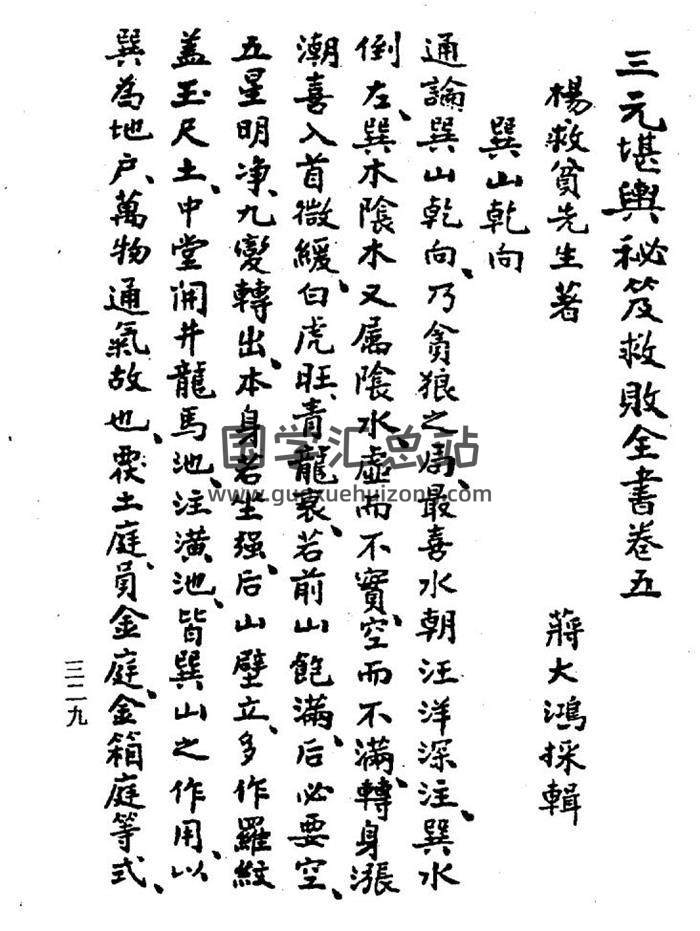 三元堪輿秘笈救敗全書卷五
楊救貧先生著 蔣大鴻採輯
巽山乾向
通論巽山乾向、乃貪狼之局、最喜水朝汪洋深注、巽水
倒左、巽木陰木又屬陰水、虛而不實、空而不滿、轉身漲
潮喜入首微緩、白虎旺、青龍衰、若前山飽滿、后必要空、
五星明净、九變轉出、本身若坐强、后山壁立、多作羅紋
盖玉尺土、中堂開井龍馬池、注潢池、皆巽山之作用、以
巽為地户、萬物通氣故也、覆土庭、員金庭、金箱庭等式、
三二九
国学汇总站
www.guoxuehuizong.com